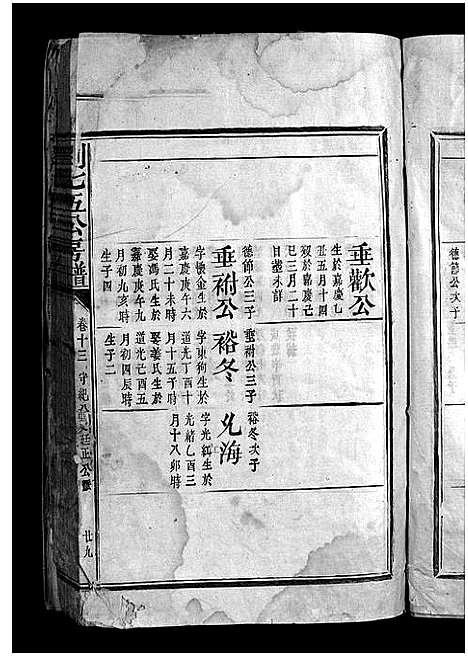 德節公次子
垂歡公
生於嘉慶乙
丑五月十四
歿於嘉慶己
巳三月二十
日塋未詳
德節公三子
垂祔公
字懷金生於
嘉慶庚午六
月二十未時
娶馮氏生於
嘉慶庚午九
月初九亥時
生子四
垂祔公三子
裕冬
字東狗生於
道光丁酉十
月十五子時
娶姜氏生於
道光己酉五
月初四辰時
生子二
裕冬次子
光海
字光紅生於
光緒乙酉三
月十八卯時
劉七五公房譜
卷十三
廿九